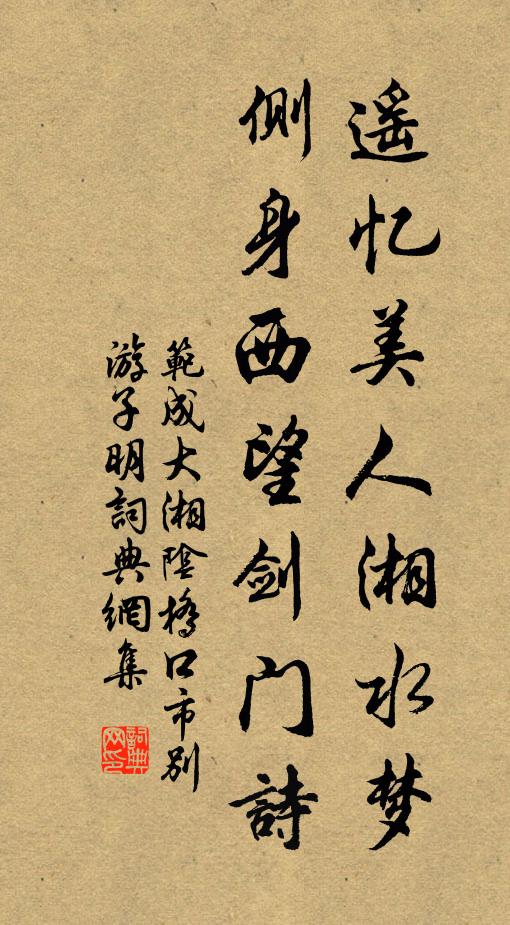 遥忆美人湘水梦
侧身西望剑门詩
範成大湘陰橋口市别
游子明詞典網集
詞典网印